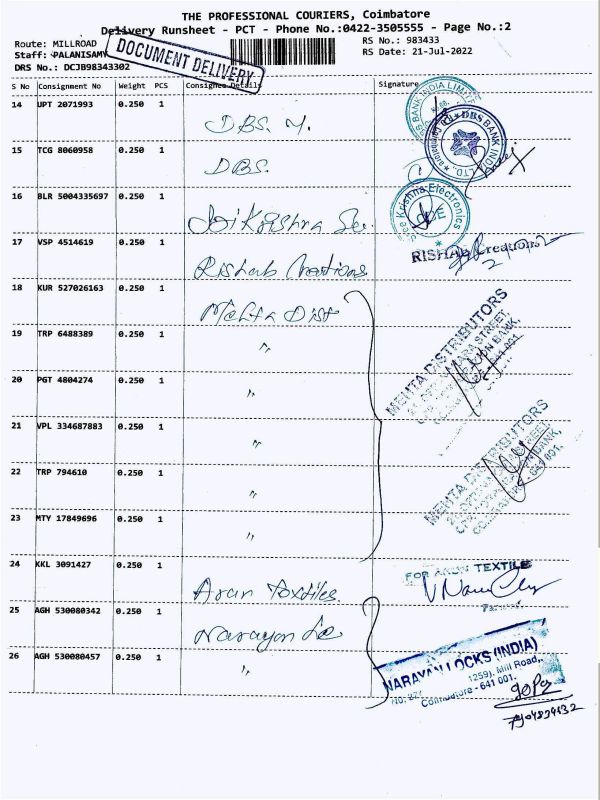 THE PROFESSIONAL COURIERS, Coimbatore
Delivery Runsheet - PCT - Phone No.:0422-3505555 - Page No.:2
Route: MILLROAD
RS No.: 983433
Staff: PALANISAMY
RS Date: 21-Jul-2022
DRS No.: DCJB98343302
DOCUMENT DELIVERY
S No Consignment No Weight PCS Consignee Details Signature
14 UPT 2071993 0.250 1
DBS. M.
15 TCG 8060958 0.250 1
DBS.
DBS BANK INDIA LTD.
16 BLR 5004335697 0.250 1
Jai Krishna Se
Jee Krishna Electronics
17 VSP 4514619 0.250 1
Rishab Creations
RISHAB Creations
18 KUR 527026163 0.250 1
Mehta Dist
19 TRP 6488389 0.250 1
"
MEHTA DISTRIBUTORS
20 PGT 4804274 0.250 1
"
21 VPL 334687883 0.250 1
"
22 TRP 794610 0.250 1
"
MEHTA DISTRIBUTORS
COIMBATORE - 641 001.
23 MTY 17849696 0.250 1
"
24 KKL 3091427 0.250 1
Arun Textiles
FOR ARUN TEXTILE
25 AGH 530080342 0.250 1
Narayan Lo
26 AGH 530080457 0.250 1
"
NARAYAN LOCKS (INDIA)
1259), Mill Road,
Coimbatore - 641 001.